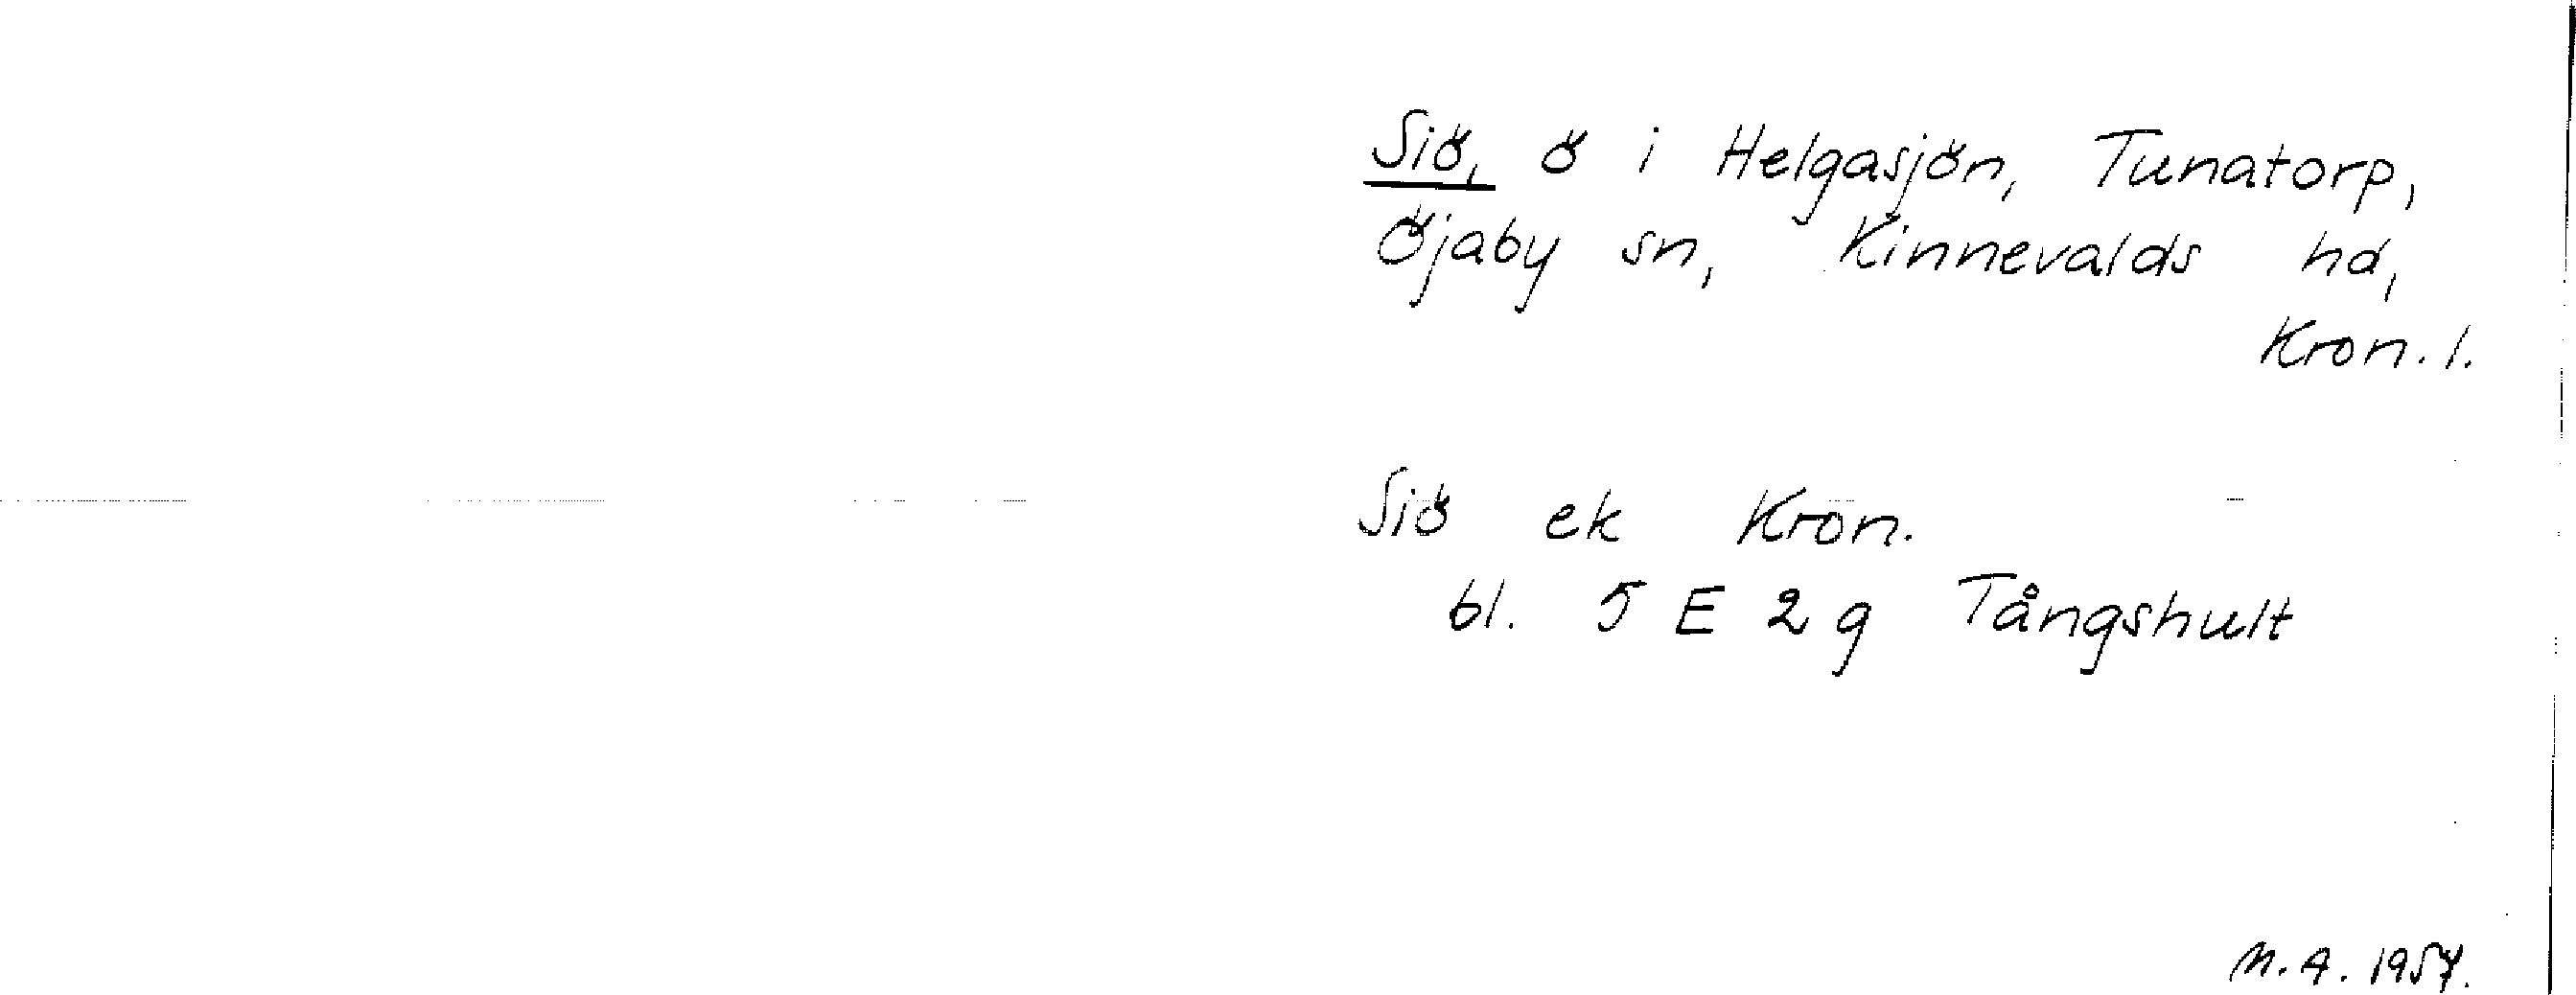 Siö, ö i Helgasjön, Tunatorp,
Öjaby sn, Kinnevalds hd,
Kron. l.
Siö ek Kron.
bl. 5 E 2 g Tångshult
M.A. 1957.